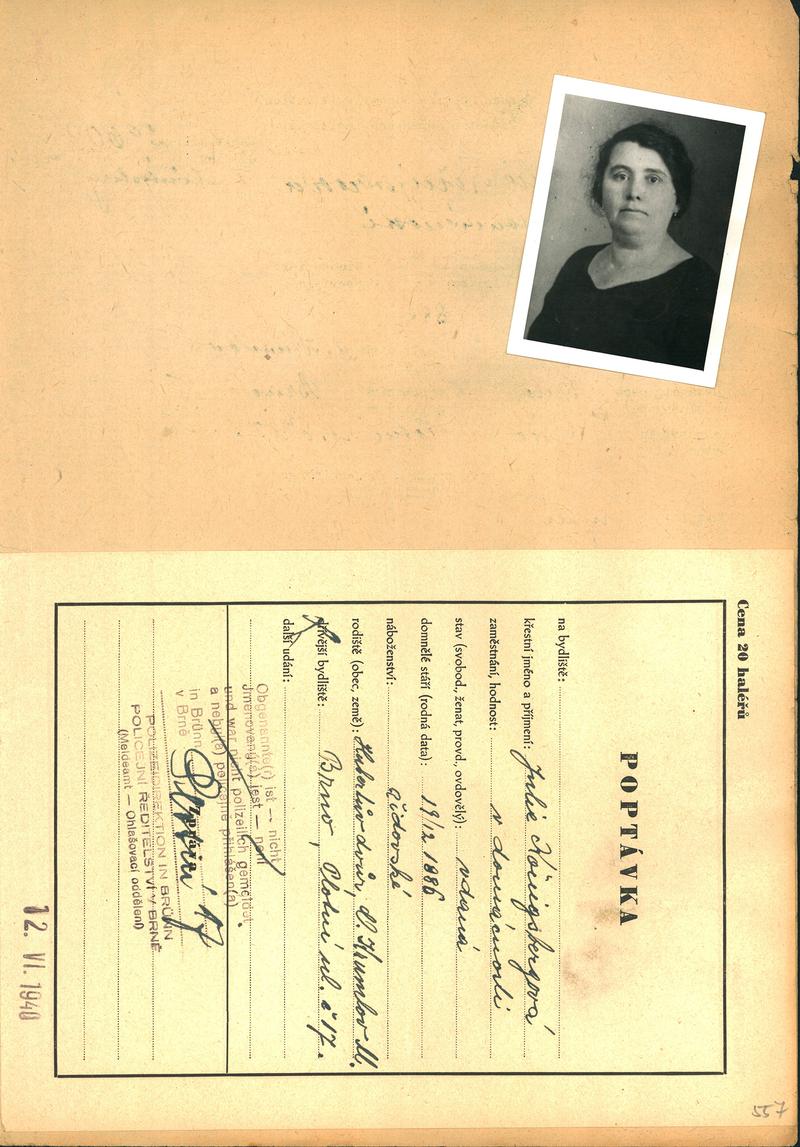 Cena 20 haléřů
POPTÁVKA
na bydliště:
křestní jméno a příjmení: Julie Königsbergová
zaměstnání, hodnost: v domácnosti
stav (svobod., ženat, provd., ovdovělý): vdaná
domnělé stáří (rodná data): 19/12 1886
náboženství: židovské
rodiště (obec, země): Hubertův dvůr, O. Krumlov M.
dřívější bydliště: Brno, Plotní ul. č 17.
další udání:
Obgenannte(r) ist — nicht
Jmenovaný(á) jest — není
und war nicht polizeilich gemeldet.
a nebyl(a) policejně přihlášen(a)
in Brünn
v Brně
17
POLIZEIDIREKTION IN BRÜNN
POLICEJNÍ ŘEDITELSTVÍ V BRNĚ
(Meldeamt — Ohlašovací oddělení)
12. VI. 1940
557